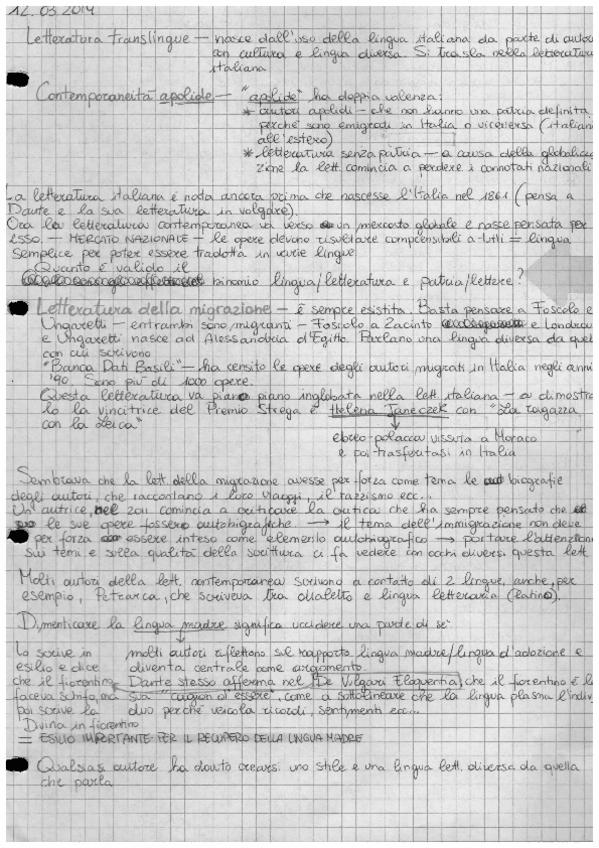 12.03.2019
Letteratura translingue – nasce dall'uso della lingua italiana da parte di autori
con cultura e lingua diversa. Si trasla nella letteratura
italiana
Contemporaneità apolide – "apolide" ha doppia valenza:
* autori apolidi – che non hanno una patria definita
perché sono emigrati in Italia o viceversa (italiani
all'estero)
* letteratura senza patria – a causa della globalizza
zione la lett. comincia a perdere i connotati nazionali
La letteratura italiana è nota ancora prima che nascesse l'Italia nel 1861 (pensa a
Dante e la sua letteratura in volgare).
Ora la letteratura contemporanea va verso un mercato globale e nasce pensata per
esso. – MERCATO NAZIONALE – le opere devono risultare comprensibili a tutti = lingua
semplice per poter essere tradotta in varie lingue
Quanto è valido il
binomio lingua/letteratura e patria/lettere?
Letteratura della migrazione – è sempre esistita. Basta pensare a Foscolo e
Ungaretti – entrambi sono migranti – Foscolo a Zacinto e Londra
e Ungaretti nasce ad Alessandria d'Egitto. Parlano una lingua diversa da quel
con cui scrivono
"Banca Dati Basili" – ha censito le opere degli autori migrati in Italia negli anni
'90. Sono più di 1000 opere.
Questa letteratura va piano piano inglobata nella lett. italiana – a dimostra
lo la vincitrice del Premio Strega è Helena Janeczek con "La ragazza
con la Leica"
ebreo-polacca vissuta a Monaco
e poi trasferitasi in Italia
Sembrava che la lett. della migrazione avesse per forza come tema le biografie
degli autori, che raccontano i loro viaggi, il razzismo ecc...
Un'autrice, nel 2011 comincia a criticare la critica che ha sempre pensato che
le sue opere fossero autobiografiche → il tema dell'immigrazione non deve
per forza essere inteso come elemento autobiografico → portare l'attenzione
sui temi e sulla qualità della scrittura ci fa vedere con occhi diversi questa lett
Molti autori della lett. contemporanea scrivono a contatto di 2 lingue, anche, per
esempio, Petrarca, che scriveva tra dialetto e lingua letteraria (latino).
Dimenticare la lingua madre significa uccidere una parte di sé
molti autori riflettono sul rapporto lingua madre/lingua d'adozione e
diventa centrale come argomento
Dante stesso afferma nel "De Vulgari Eloquentia, che il fiorentino è la
sua "cagion di essere", come a sottolineare che la lingua plasma l'indivi
duo perché veicola ricordi, sentimenti ecc...
Lo scrive in
esilio e dice
che il fiorentino
faceva schifo, ma
poi scrive la
Divina in fiorentino
= ESILIO IMPORTANTE PER IL RECUPERO DELLA LINGUA MADRE
Qualsiasi autore ha dovuto crearsi uno stile e una lingua lett. diversa da quella
che parla